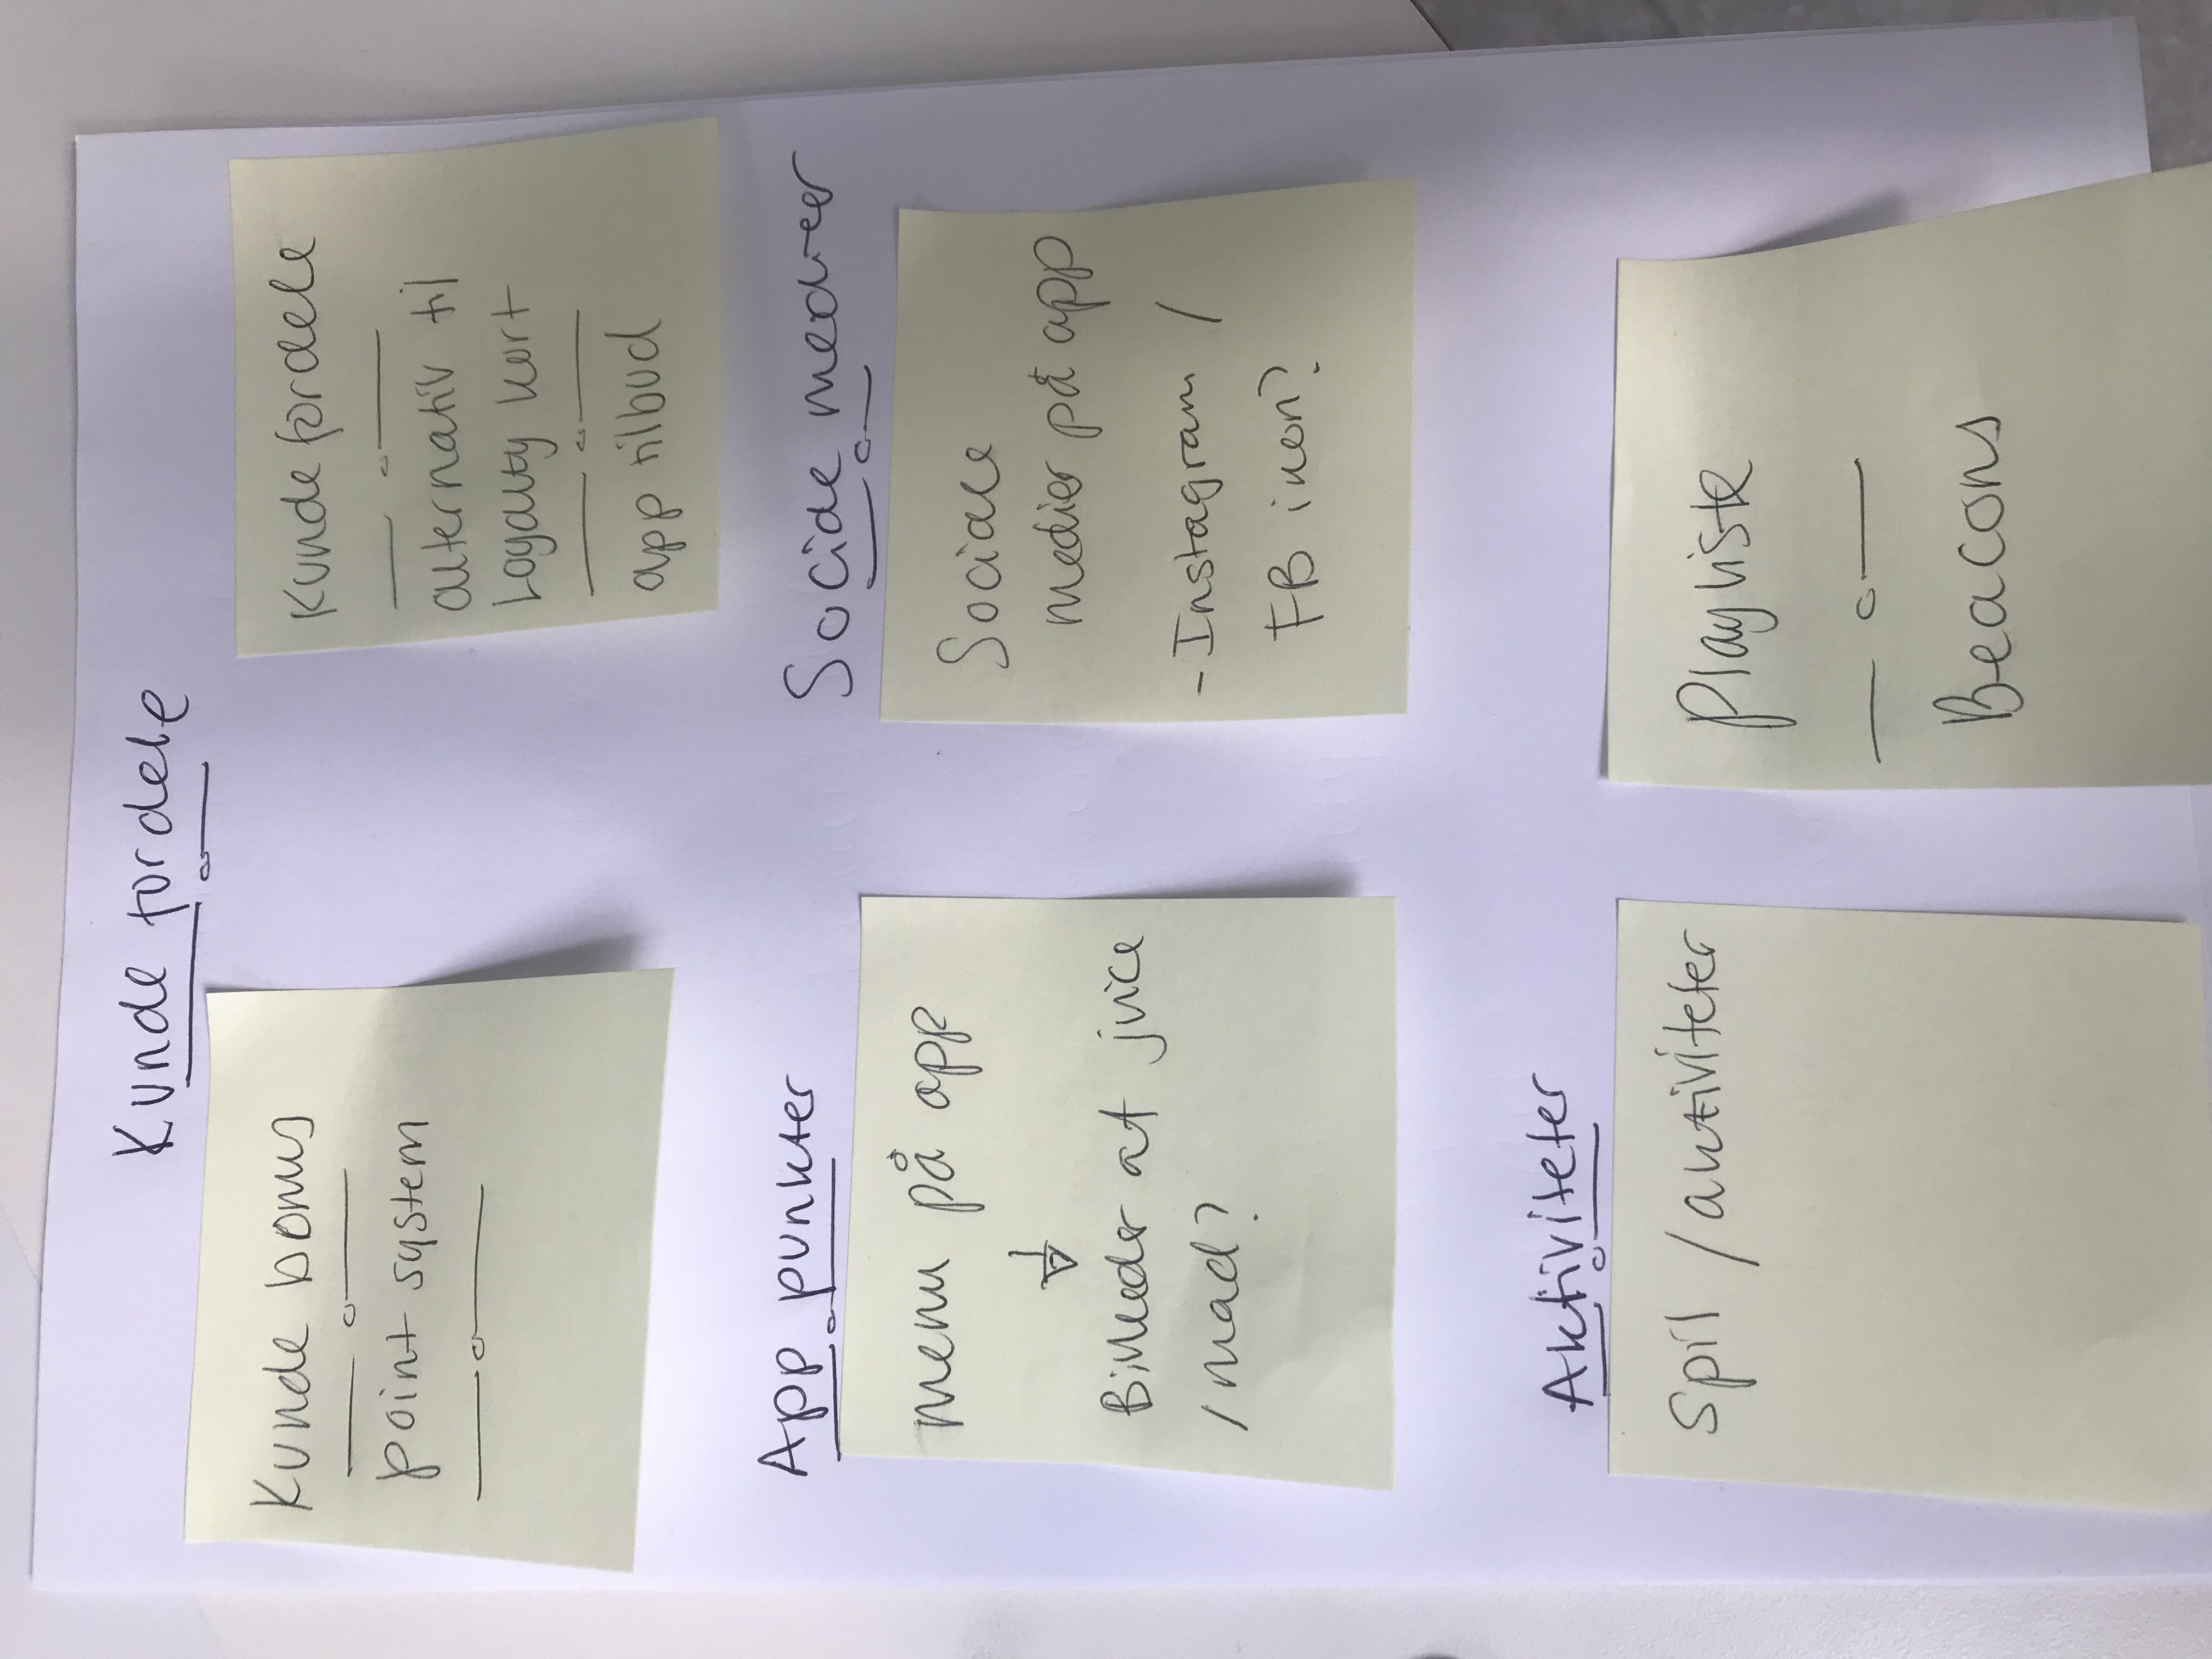 Kunde fordele
Kunde bonus
point system
Kunde fordele
alternativ til
Loyalty kort
app tilbud
App punkter
menu på app
Billeder af juice
/mad?
Sociale medier
Sociale
medier på app
- Instagram /
FB ikon?
Aktiviteter
Spil / aktiviteter
Playliste
Beacons